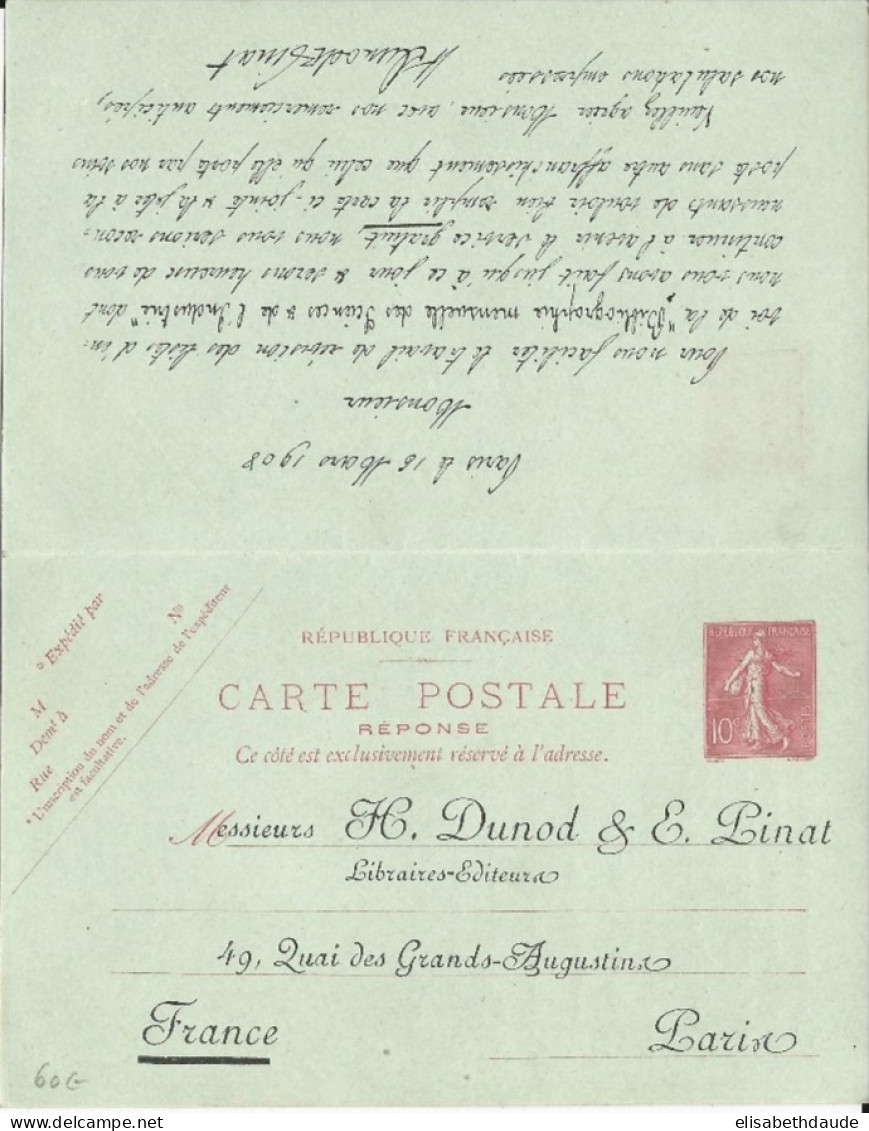 Paris le 16 Mars 1908
Monsieur
Pour nous faciliter le travail de révision des listes d'en-
voi de la "Bibliographie mensuelle des Sciences & de l'Industrie" dont
nous vous avons fait jusqu'à ce jour & serons heureux de vous
continuer à l'avenir le service gratuit, nous vous serions recon-
naissants de vouloir bien remplir la carte ci-jointe & la jeter à la
poste sans autre affranchissement que celui qu'elle porte par nos soins
Veuillez agréer Monsieur, avec nos remerciements anticipés,
nos salutations empressées
H Dunod & E Pinat
* Expédié par
M
Demt à
Rue No
* L'inscription du nom et de l'adresse de l'expéditeur
est facultative.
RÉPUBLIQUE FRANÇAISE
CARTE POSTALE
RÉPONSE
Ce côté est exclusivement réservé à l'adresse.
REPUBLIQUE FRANÇAISE
10c
POSTES
Messieurs H. Dunod & E. Pinat
Libraires-Editeurs
49, Quai des Grands-Augustins
France Paris
60€
elisabethdaude